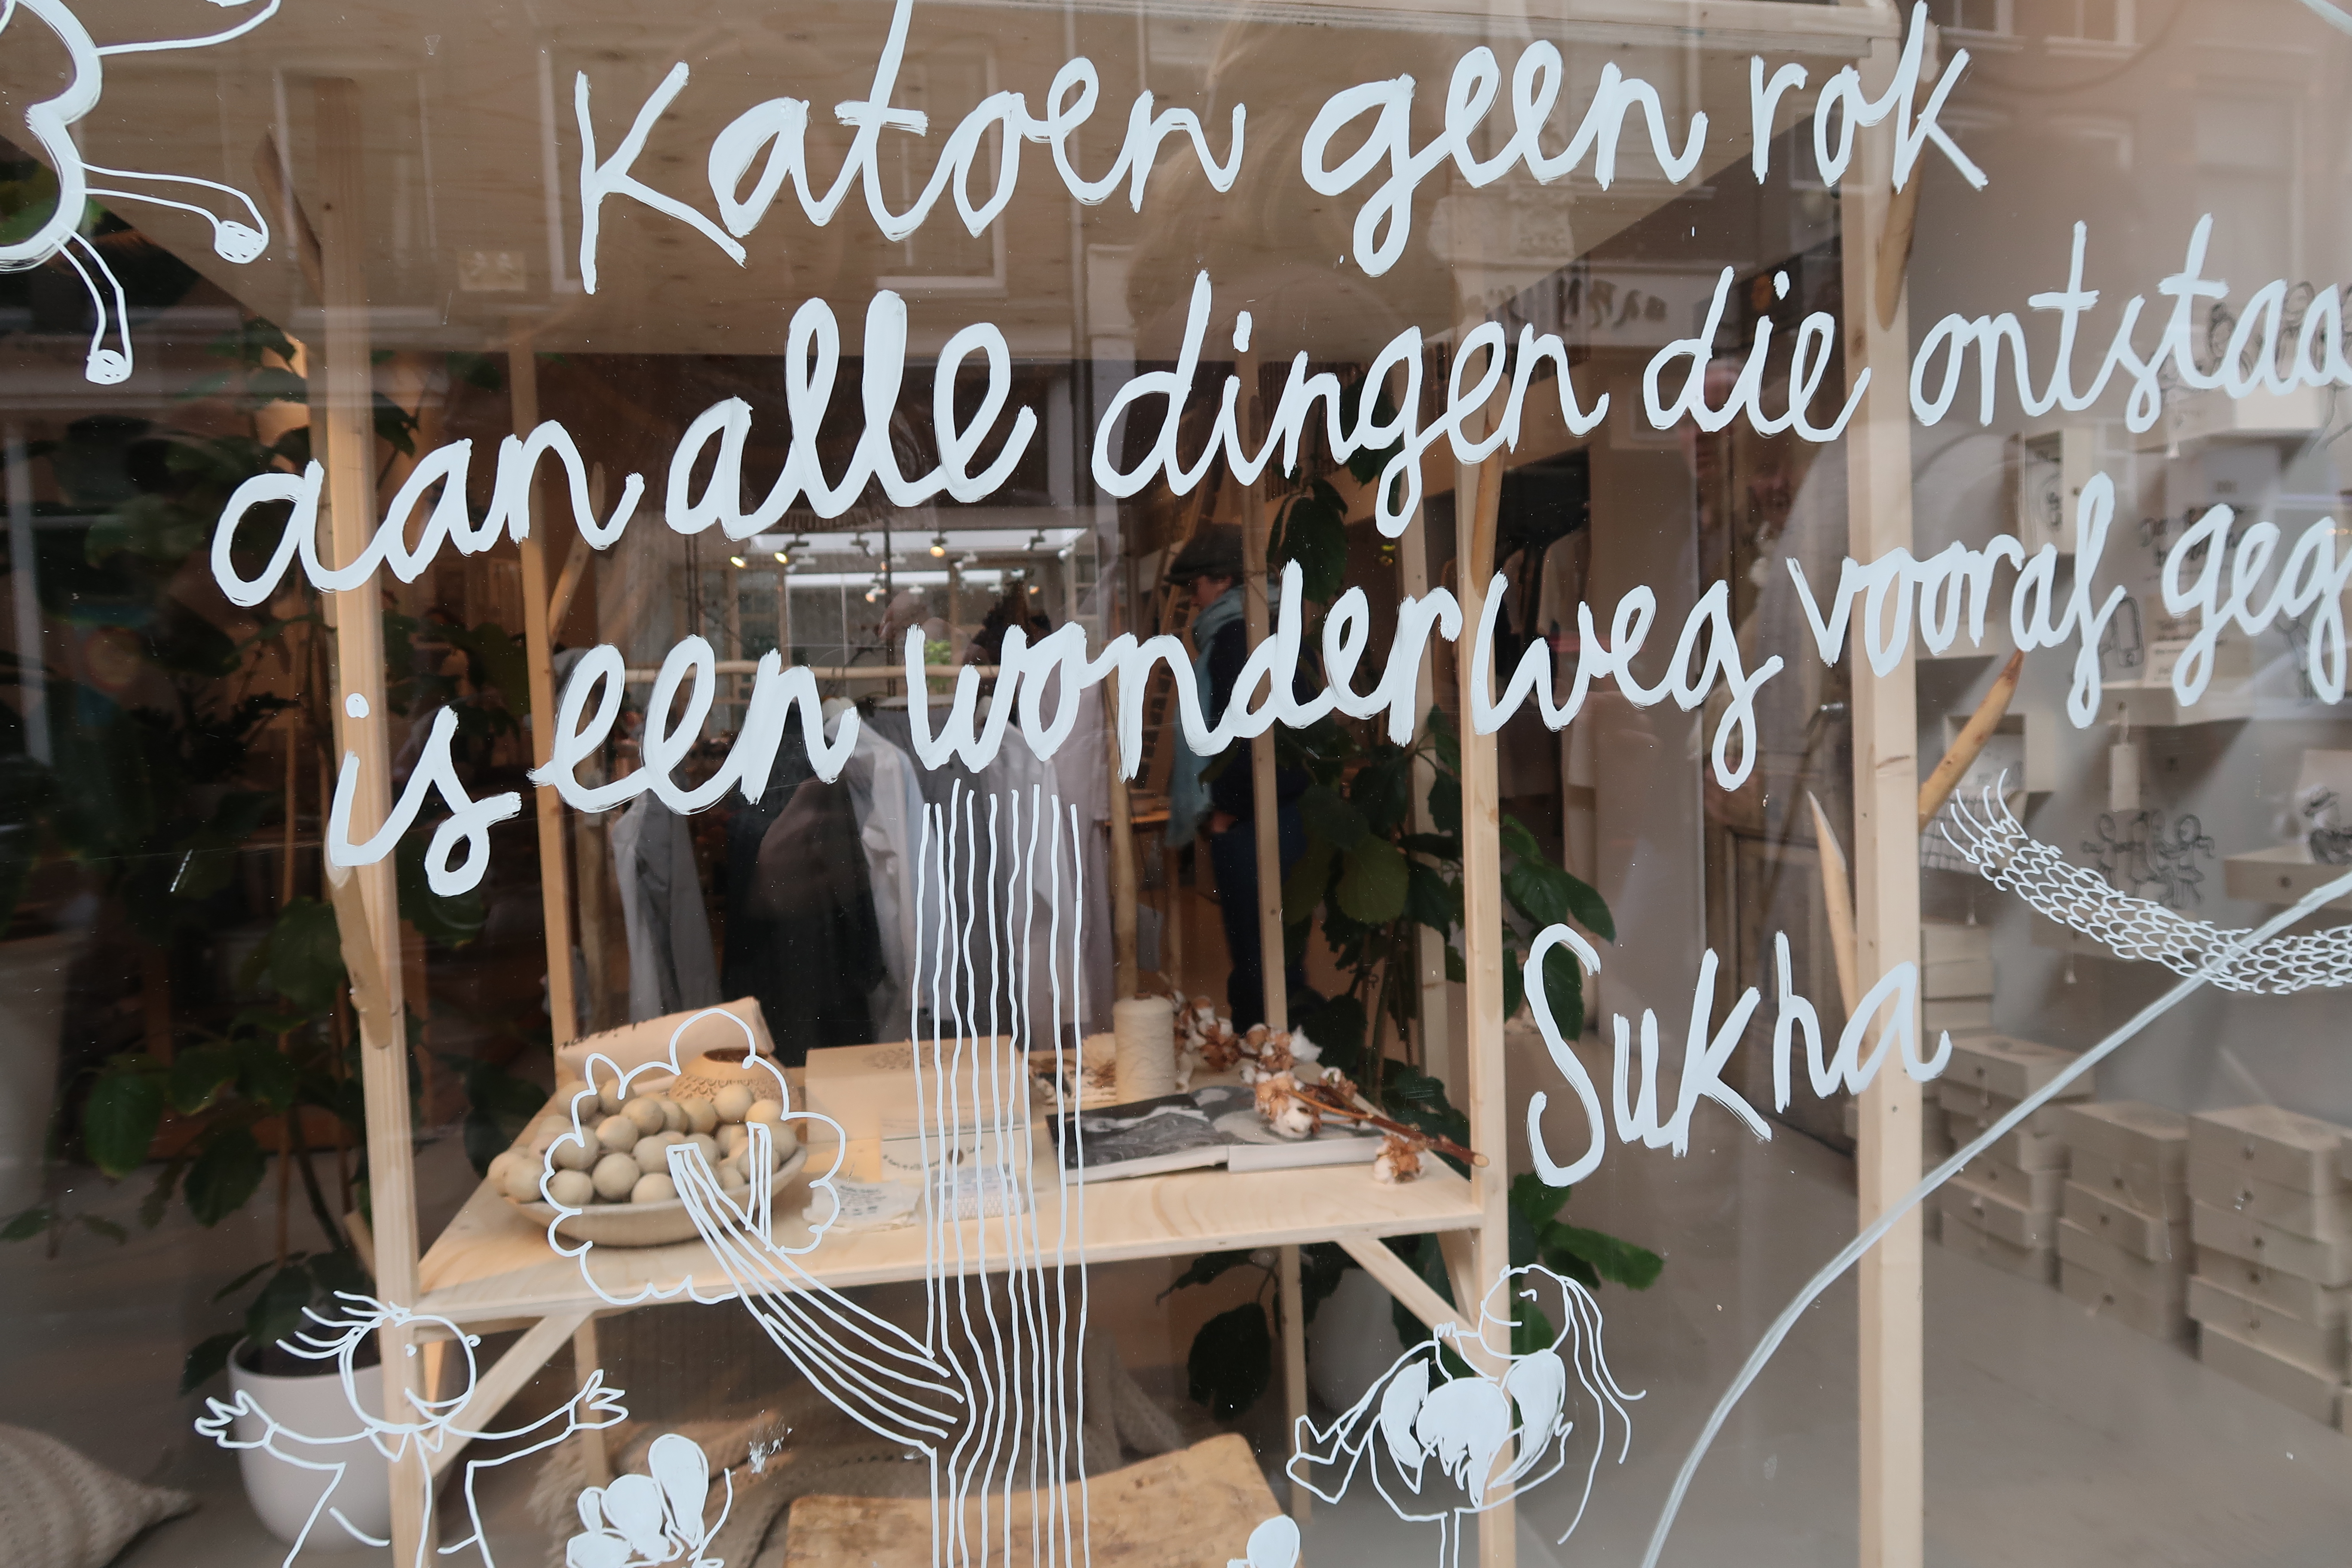 Katoen geen rok
aan alle dingen die ontstaa
is een wonderweg vooraf geg
Sukha